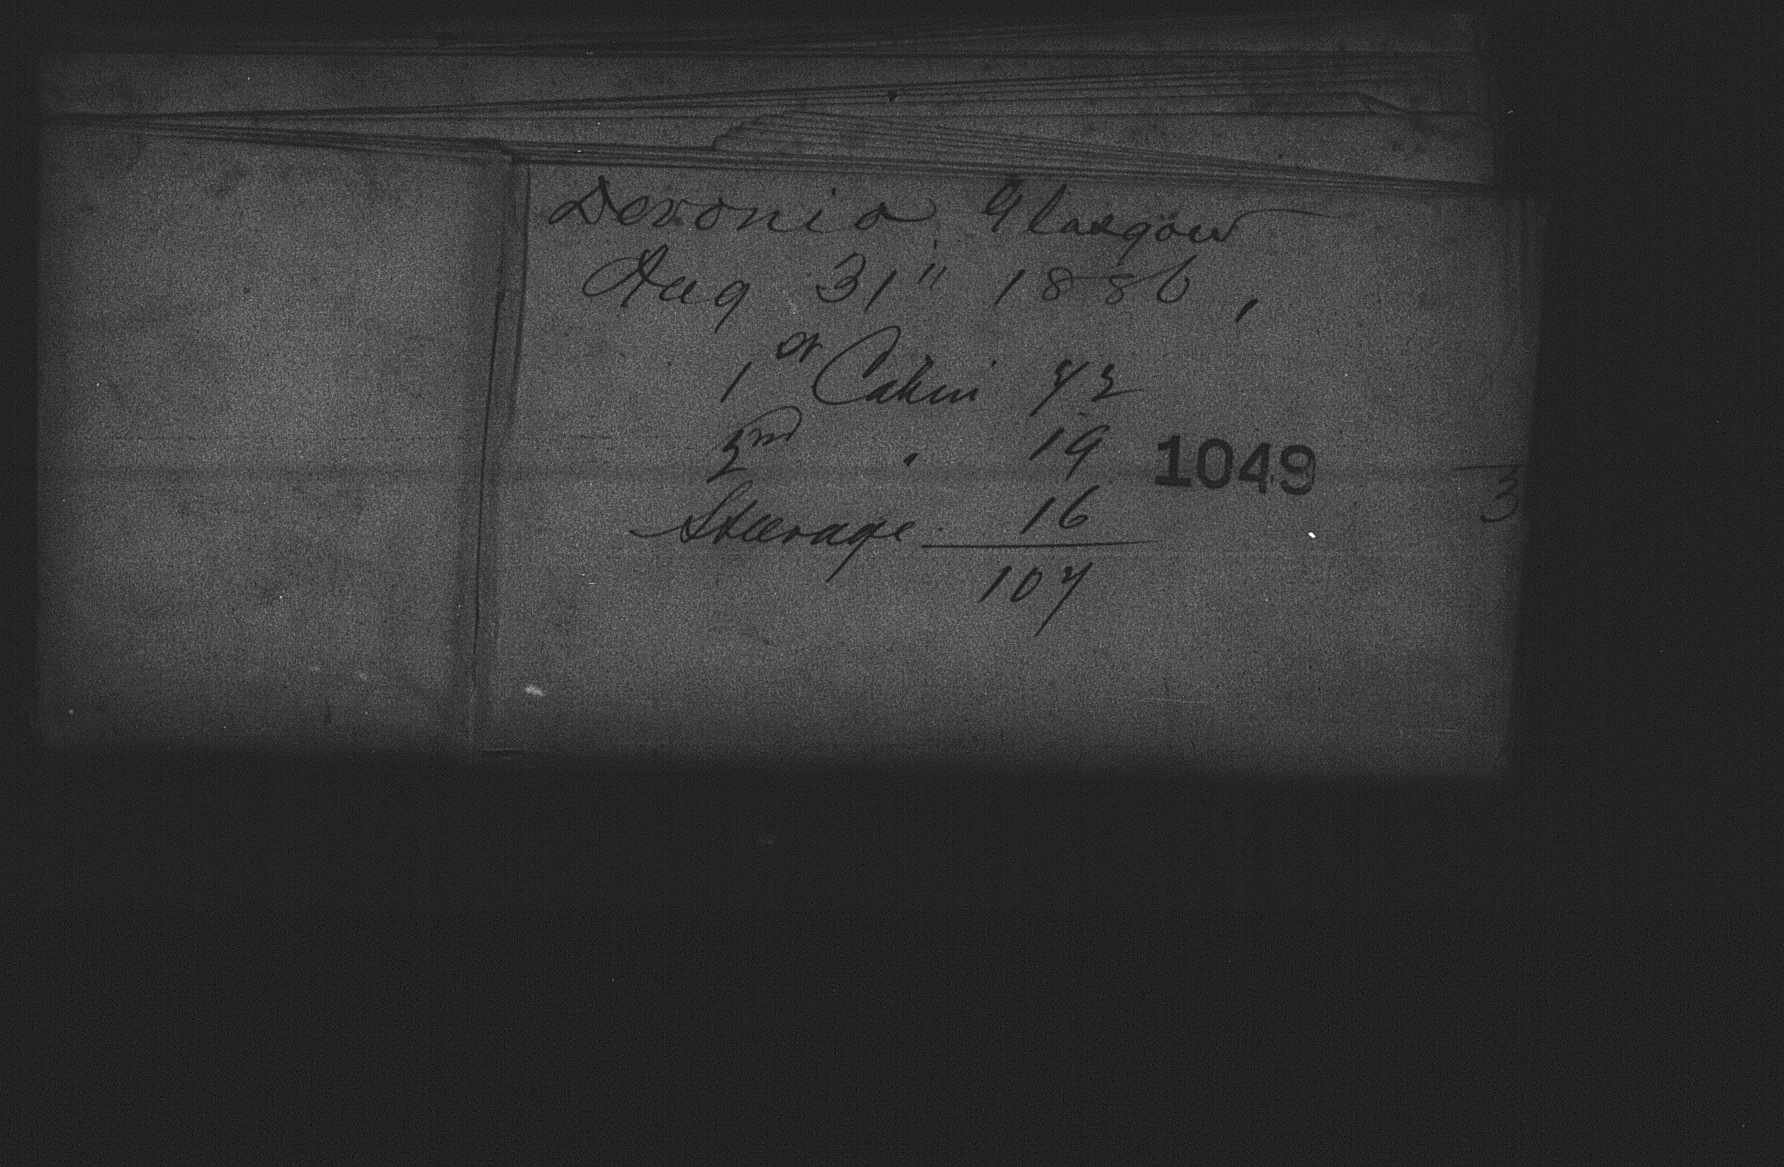 Devonia, Glasgow
Aug 31" 1886,
1st Cabin 72
2nd " 19
1049
3
Steerage. 16
107